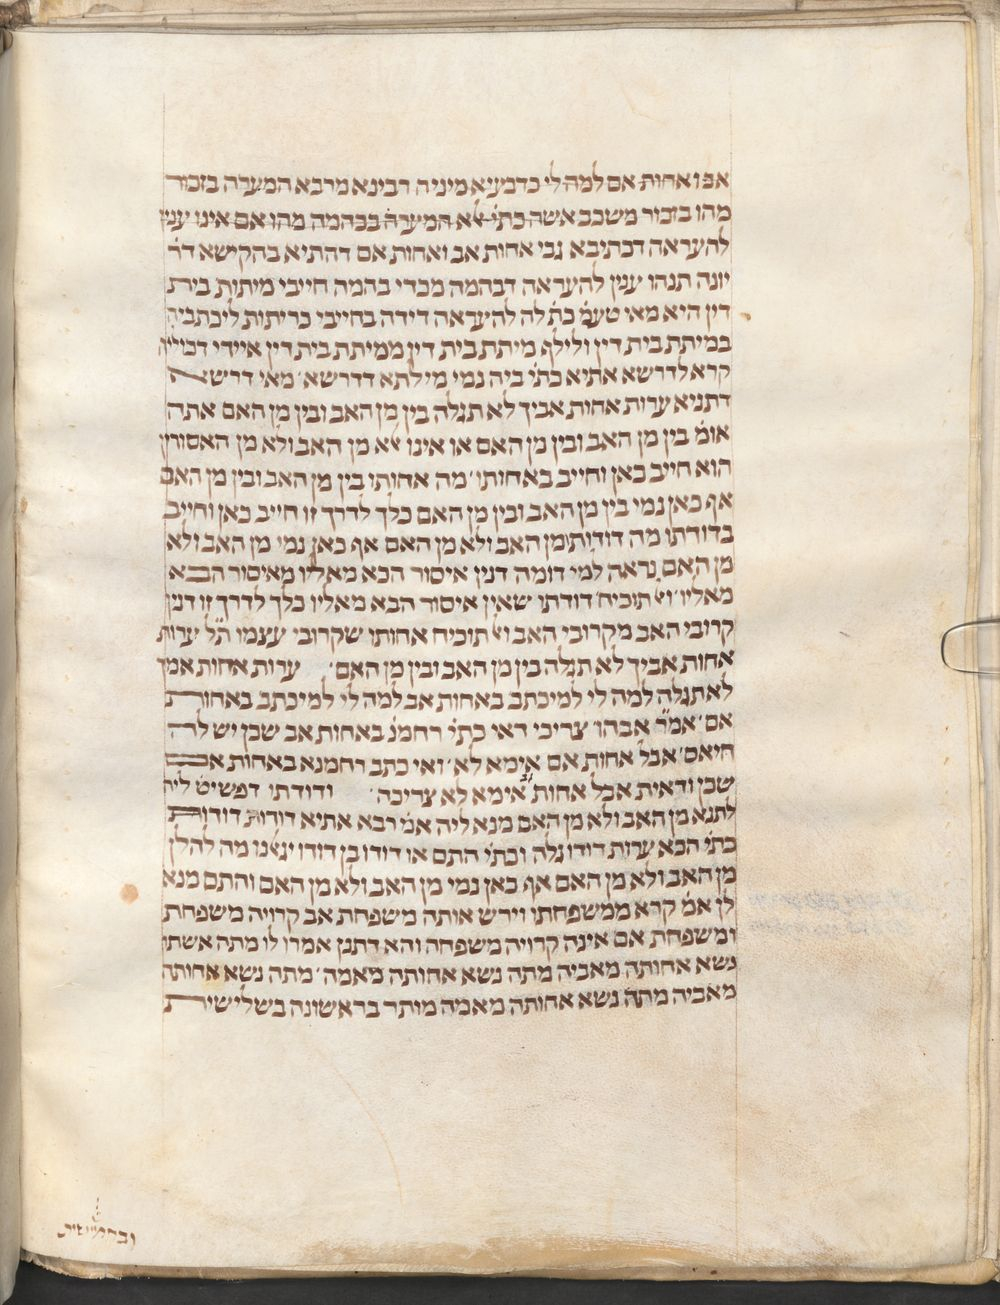 אב ואחות אם למה לי כדבעיא מיניה רבינא מרבא המערה בזכור
מהו בזכור משכבי אשה כתי׳ אלא המערה בבהמה מהו אם אינו ענין
להעראה דכתיבא גבי אחות אב ואחות אם דהתיא בהקישא דר׳
יונה תנהו ענין להעראה דבהמה מכדי בהמה חייבי מיתות בית
דין היא מאי טעמ׳ כת׳ לה להעראה דידה בחייבי כריתות ליכתביה
במיתת בית דין ולילף מיתת בית דין ממיתת בית דין איידי דכוליה
קרא לדרשא אתיא כתי׳ ביה נמי מילתא דדרשא׳ מאי דרשא
דתניא ערות אחות אביך לא תגלה בין מן האב ובין מן האם אתה
אומ׳ בין מן האב ובין מן האם או אינו אלא מן האב ולא מן האם דין
הוא חייב כאן וחייב באחותו׳ מה אחותו בין מן האב ובין מן האם
אף כאן נמי בין מן האב ובין מן האם כלך לדרך זו חייב כאן וחייב
בדודתו מה דודתו מן האב ולא מן האם אף כאן נמי מן האב ולא
מן האם נראה למי דומה דנין איסור הבא מאליו מאיסור הבא
מאליו׳ ואל תוכיח דודתו שאין איסור הבא מאליו כלך לדרך זו דנין
קרובי האב מקרובי האב ואל תוכיח אחותו שקרובי עצמו ת״ל ערות
אחות אביך לא תגלה בין מן האב ובין מן האם׳ ערות אחות אמך
לא תגלה למה לי למיכתב באחות אב למה לי למיכתב באחות
אם׳ אמ״ר אבהו׳ צריכי דאי כתי׳ רחמנ׳ באחות אב שכן יש לה
חיאס׳ אבל אחות אם אימא לא׳ ואי כתב רחמנא באחות אם
שכן ודאית אבל אחות אב אימא לא צריכה׳ ודודתו דפשיט ליה
לתנא מן האב ולא מן האם מנא ליה אמ׳ רבא אתיא דודות דודות
כתי׳ הכא ערות דודו גלה וכתי׳ התם או דודו או בן דודו יגאלנו מה להלן
מן האב ולא מן האם אף כאן נמי מן האב ולא מן האם והתם מנא
לן אמ׳ קרא ממשפחתו וירש אותה משפחת אב קרויה משפחת
ומשפחת אם אינה קרויה משפחה והא דתנן אמרו לו מתה אשתו
נשא אחותה מאביה מתה נשא אחותה מאמה׳ מתה נשא אחותה
מאביה מתה נשא אחותה מאמה מותר בראשונה בשלישית
ובחמישית